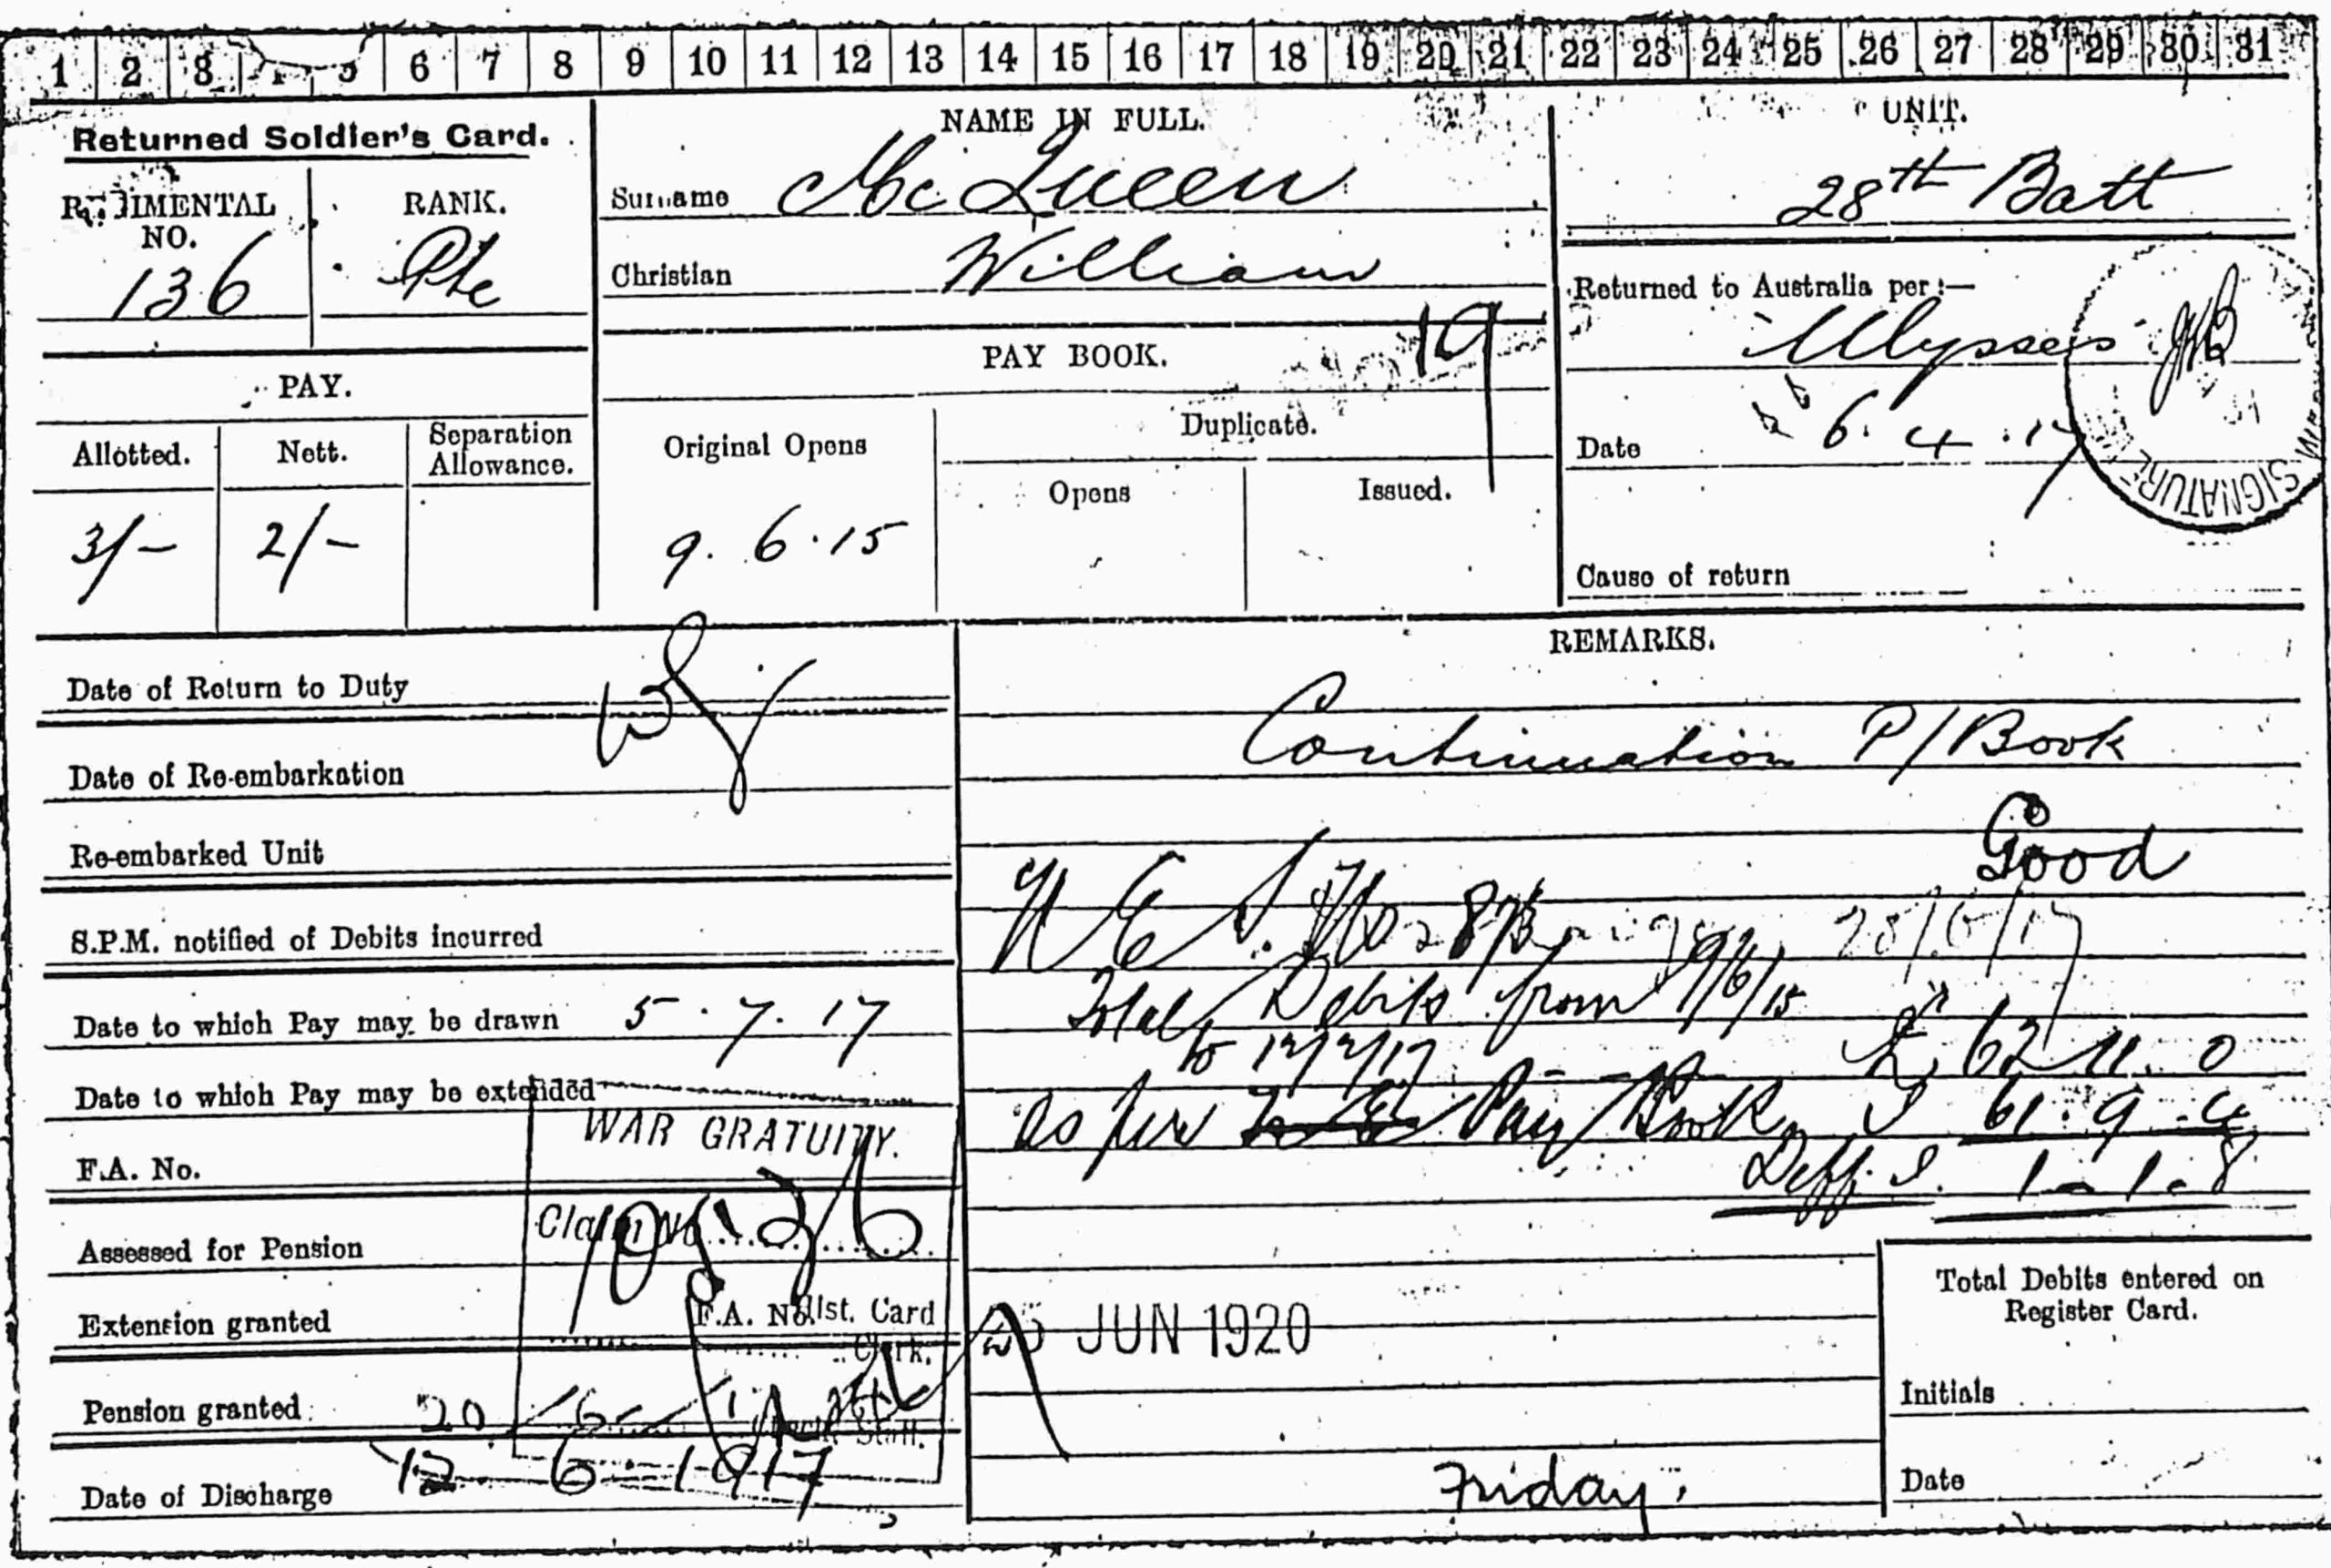 1 2 3 6 7 8 9 10 11 12 13 14 15 16 17 18 19 20 21 22 23 24 25 26 27 28 29 30 31
Returned Soldier's Card.
REGIMENTAL NO.
136
RANK.
Pte
NAME IN FULL.
Surname McQueen
Christian William
UNIT.
28th Batt
Returned to Australia per:—
Ulysses
Date 6.4.17
SIGNATURE
Cause of return
PAY.
Allotted.
Nett.
Separation Allowance.
3/-
2/-
PAY BOOK.
19
Original Opens
9.6.15
Duplicate.
Opens
Issued.
Date of Return to Duty
Date of Re-embarkation
Re-embarked Unit
S.P.M. notified of Debits incurred
Date to which Pay may be drawn 5.7.17
Date to which Pay may be extended
F.A. No.
Assessed for Pension
Extension granted
Pension granted
Date of Discharge 12-6-1917
WAR GRATUITY.
Claim No.
F.A. No.
Clerk.
REMARKS.
Continuation P/Book
Good
28/6/17
Total Debits from 9/6/15
to £ 62.11.0
as per Pay Book
Diff. 1-1-8
JUN 1920
Friday.
Total Debits entered on
Register Card.
Initials
Date